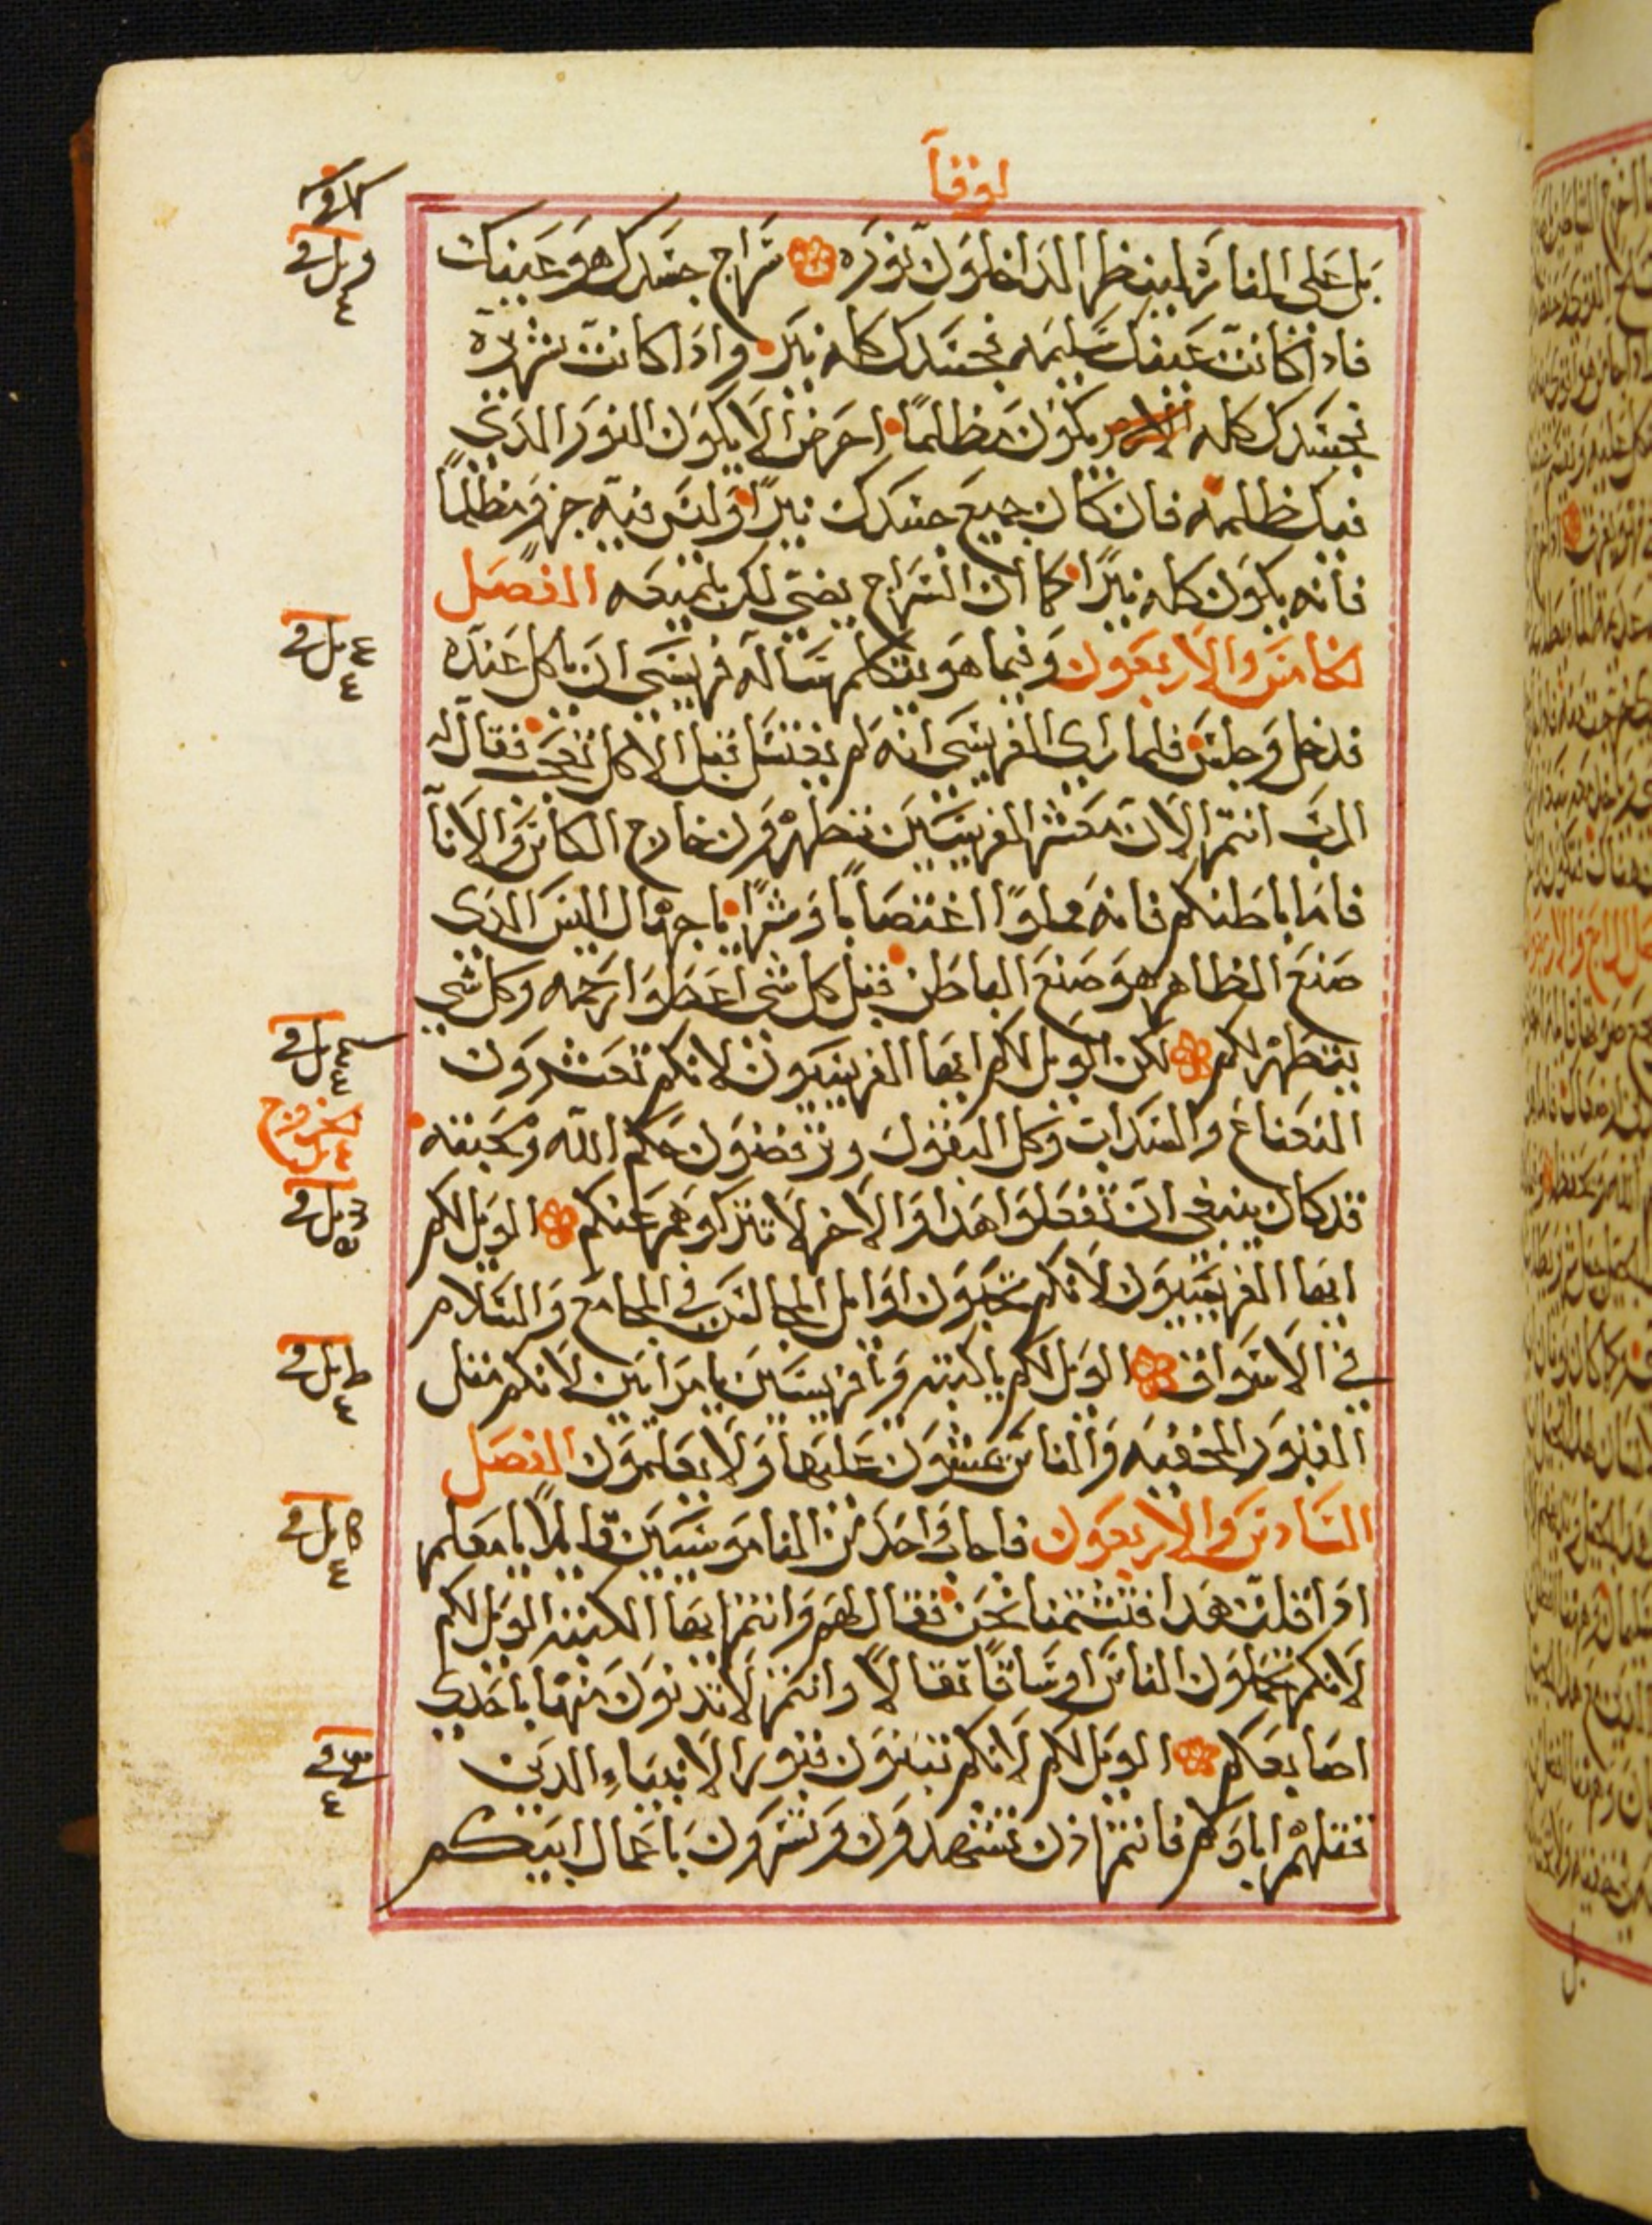 لوقا
بل على المناره لينظر الداخلون نوره سراج جسدك هو عينك
فاذا كانت عينك سليمه فجسدك كله نير واذا كانت شريره
فجسدك كله يكون مظلمًا احرص الا يكون النور الذي
فيك ظلمه فان كان جميع جسدك نيرًا وليس فيه جزو مظلمًا
فانه يكون كله نيرًا كما ان السراج يضي لك بلميعه الفصل
الخامس والاربعون وفيما هو يتكلم ساله فريسى ان ياكل عنده
فدخل وجلس فلما راى الفريسى انه لم يغتسل قبل الاكل تعجب فقال له
الرب انتم الان معشر الفريسيين تطهرون خارج الكاس والانا
فاما باطنكم فانه مملوًا اغتصابًا وشرًا يا جهال اليس الذي
صنع الظاهر هو صنع الباطن قبل كل شى اعطوا رحمه وكل شي
يتطهر لكم لكن الويل لكم ايها الفريسيون لانكم تعشرون
النعناع والسداب وكل البقول وترفضون حكم الله ومحبته
قد كان ينبغى ان تفعلوا هذا والاخر لا تتركوهم عنكم الويل لكم
ايها الفريسيون لانكم تحبون اوايل المجالس في المجامع والسلام
في الاسواق الويل لكم يا كتبه ويا فريسيين يا مرايين لانكم مثل
القبور المخفيه والناس يمشون عليها ولا يعلمون الفصل
السادس والاربعون فاجاب واحد من الناموسيين قايلًا يا معلم
اذا قلت هذا فتشتمنا نحن فقال لهم وانتم ايها الكتبه الويل لكم
لانكم تحملون الناس اوساقًا ثقالًا وانتم لا تدنون منها باحدى
اصابعكم الويل لكم لانكم تبنون قبور الانبياء الذين
قتلهم اباوكم فانتم اذن تشهدون وتسرون باعمال ابايكم